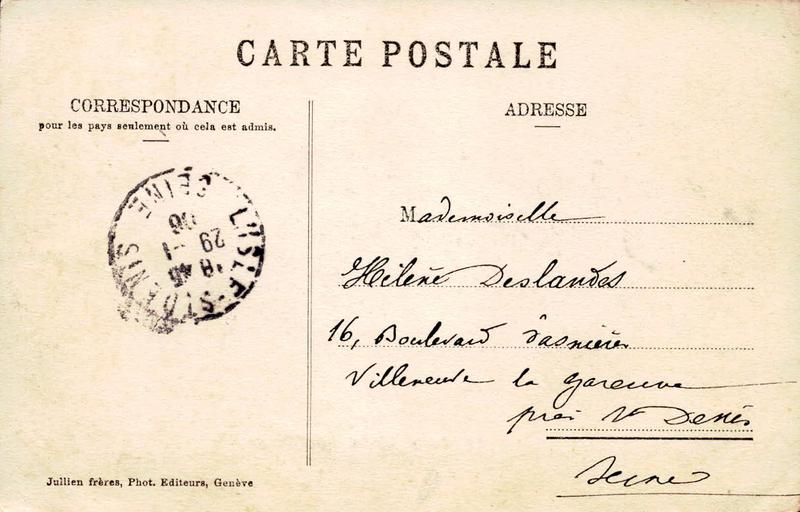 CARTE POSTALE
CORRESPONDANCE
pour les pays seulement où cela est admis.
ADRESSE
L'ISLE-ST DENIS
SEINE
18 45
29 -1
06
Mademoiselle
Hélène Deslandes
16, Boulevard d'asnières
Villeneuve la garenne
près St Denis
Seine
Jullien frères, Phot. Editeurs, Genève